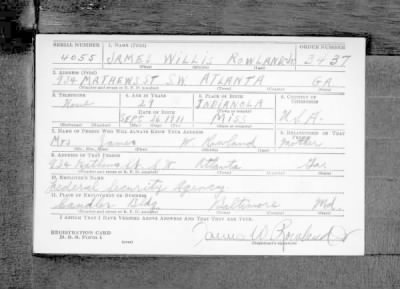 SERIAL NUMBER 1. NAME (Print) ORDER NUMBER
4055 JAMES WILLIS ROWLAND Jr 3437
(First) (Middle) (Last)
2. ADDRESS (Print)
934 MATHEWS ST SW ATLANTA GA.
(Number and street or R. F. D. number) (Town) (County) (State)
3. TELEPHONE 4. AGE IN YEARS 5. PLACE OF BIRTH 6. COUNTRY OF CITIZENSHIP
None 29 INDIANOLA
DATE OF BIRTH
Sept 26 1911 Miss U.S.A.
(Mo.) (Day) (Yr.) (State or country)
7. NAME OF PERSON WHO WILL ALWAYS KNOW YOUR ADDRESS 8. RELATIONSHIP OF THAT PERSON
Mrs James W. Rowland Mother
(Mr., Mrs., Miss) (First) (Middle) (Last)
9. ADDRESS OF THAT PERSON
934 Mathews St. S.W. Atlanta Ga.
(Number and street or R. F. D. number) (Town) (County) (State)
10. EMPLOYER'S NAME
Federal Security Agency
11. PLACE OF EMPLOYMENT OR BUSINESS
Candler Bldg. Baltimore Md.
(Number and street or R. F. D. number) (Town) (County) (State)
I AFFIRM THAT I HAVE VERIFIED ABOVE ANSWERS AND THAT THEY ARE TRUE.
REGISTRATION CARD
D. S. S. FORM 1 James W. Rowland Jr
(over) (Registrant's signature)